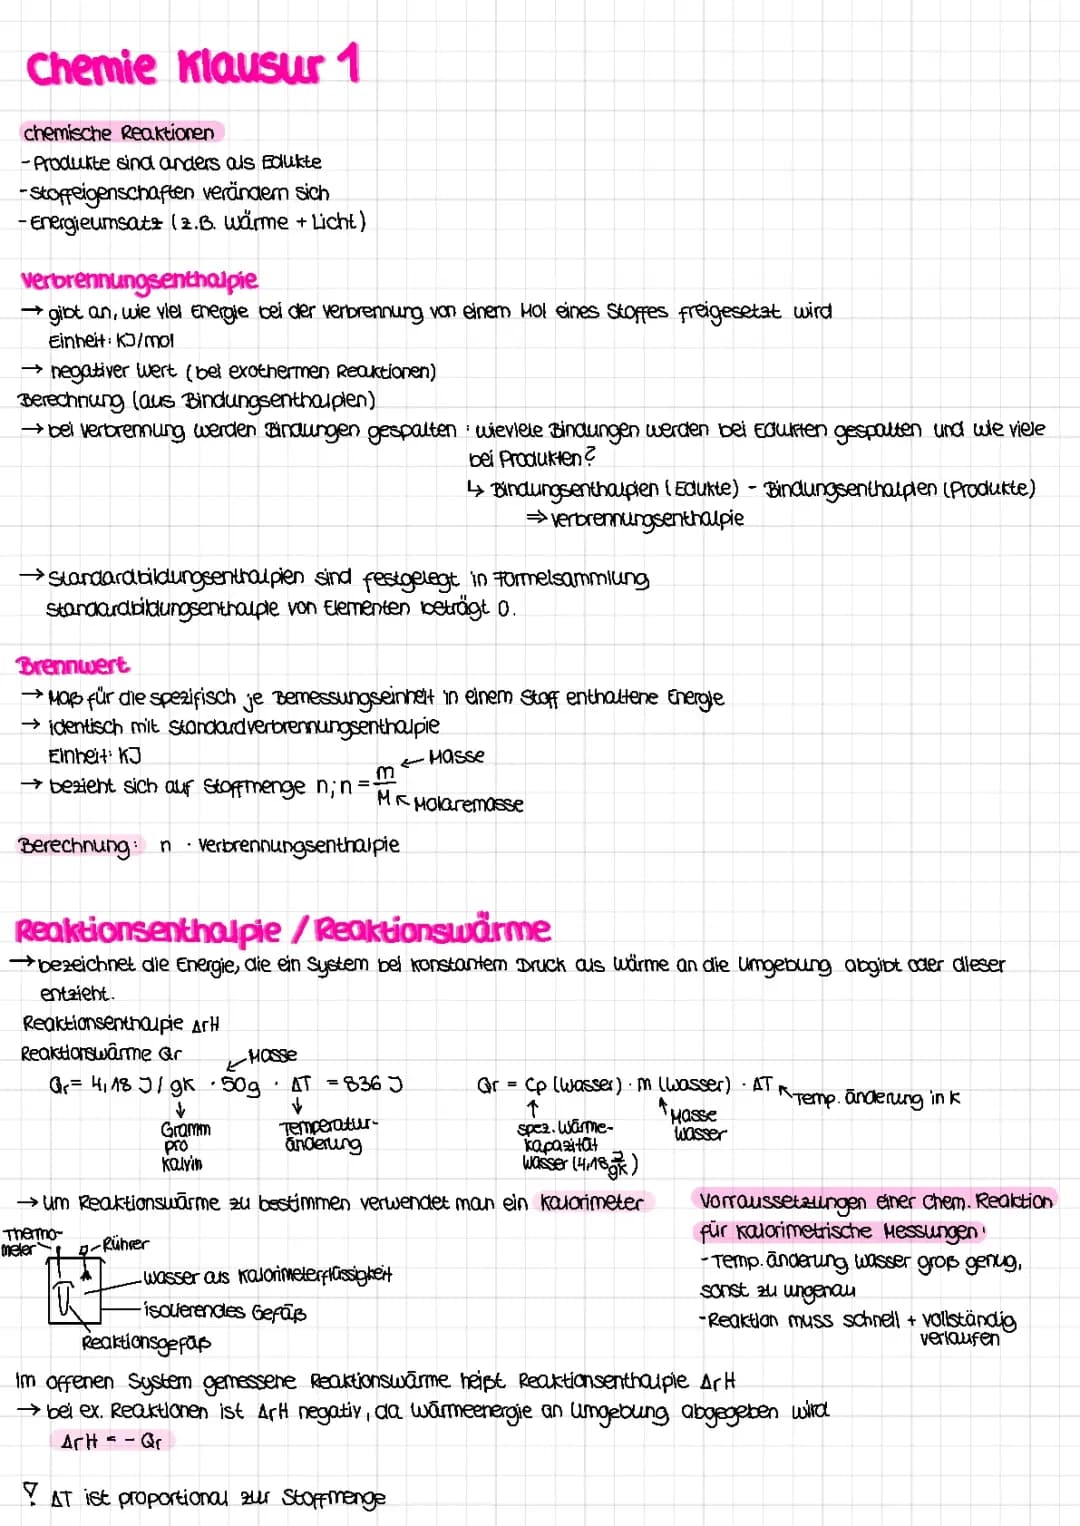 Chemie Klausur 1
chemische Reaktionen
- Produkte sind anders als Edukte
- Stoffeigenschaften verändern sich
- Energieumsatz (z.B. Wärme + Licht)
Verbrennungsenthalpie
→ gibt an, wie viel Energie bei der Verbrennung von einem Mol eines Stoffes freigesetzt wird
Einheit: KJ/mol
→ negativer Wert (bei exothermen Reaktionen)
Berechnung (aus Bindungsenthalpien)
→ bei Verbrennung werden Bindungen gespalten : wieviele Bindungen werden bei Edukten gespalten und wie viele
bei Produkten?
↳ Bindungsenthalpien (Edukte) - Bindungsenthalpien (Produkte)
⇒ Verbrennungsenthalpie
→ Standardbildungsenthalpien sind festgelegt in Formelsammlung
Standardbildungsenthalpie von Elementen beträgt 0.
Brennwert
→ Maß für die spezifisch je Bemessungseinheit in einem Stoff enthaltene Energie
→ identisch mit Standardverbrennungsenthalpie
Einheit: KJ
→ bezieht sich auf Stoffmenge n; n = m/M
← Masse
↖ Molaremasse
Berechnung: n · Verbrennungsenthalpie
Reaktionsenthalpie / Reaktionswärme
→ bezeichnet die Energie, die ein System bei konstantem Druck als Wärme an die Umgebung abgibt oder dieser
entzieht.
Reaktionsenthalpie ΔrH
Reaktionswärme Qr
Masse
Qr = 4,18 J/gK · 50g · ΔT = 836 J
Gramm
pro
Kalvin
Temperatur-
änderung
Qr = Cp (Wasser) · m (Wasser) · ΔT
Temp. änderung in K
spez. Wärme-
kapazität
Wasser (4,18 J/gK)
Masse
Wasser
→ um Reaktionswärme zu bestimmen verwendet man ein Kalorimeter
Thermo-
meter
Rührer
Wasser als Kalorimeterflüssigkeit
isolierendes Gefäß
Reaktionsgefäß
Vorraussetzungen einer Chem. Reaktion
für Kalorimetrische Messungen:
- Temp. änderung Wasser groß genug,
sonst zu ungenau
- Reaktion muss schnell + vollständig
verlaufen
Im offenen System gemessene Reaktionswärme heißt Reaktionsenthalpie ΔrH
→ bei ex. Reaktionen ist ΔrH negativ, da Wärmeenergie an Umgebung abgegeben wird
ΔrH = - Qr
! ΔT ist proportional zur Stoffmenge